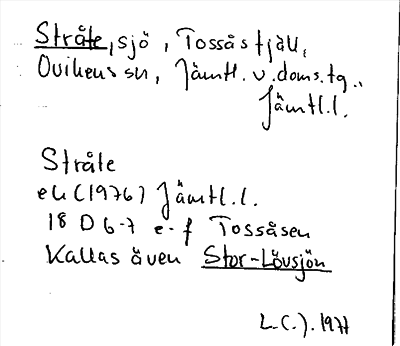 Stråte, sjö, Tossåstjäll,
Ovikens sn, Jämtl. v. doms.tg..
Jämtl.l.
Stråte
ek (1976) Jämtl.l.
18 D 6-7 e-f Tossåsen
Kallas även Stor-Lövsjön
L.C.J. 1977